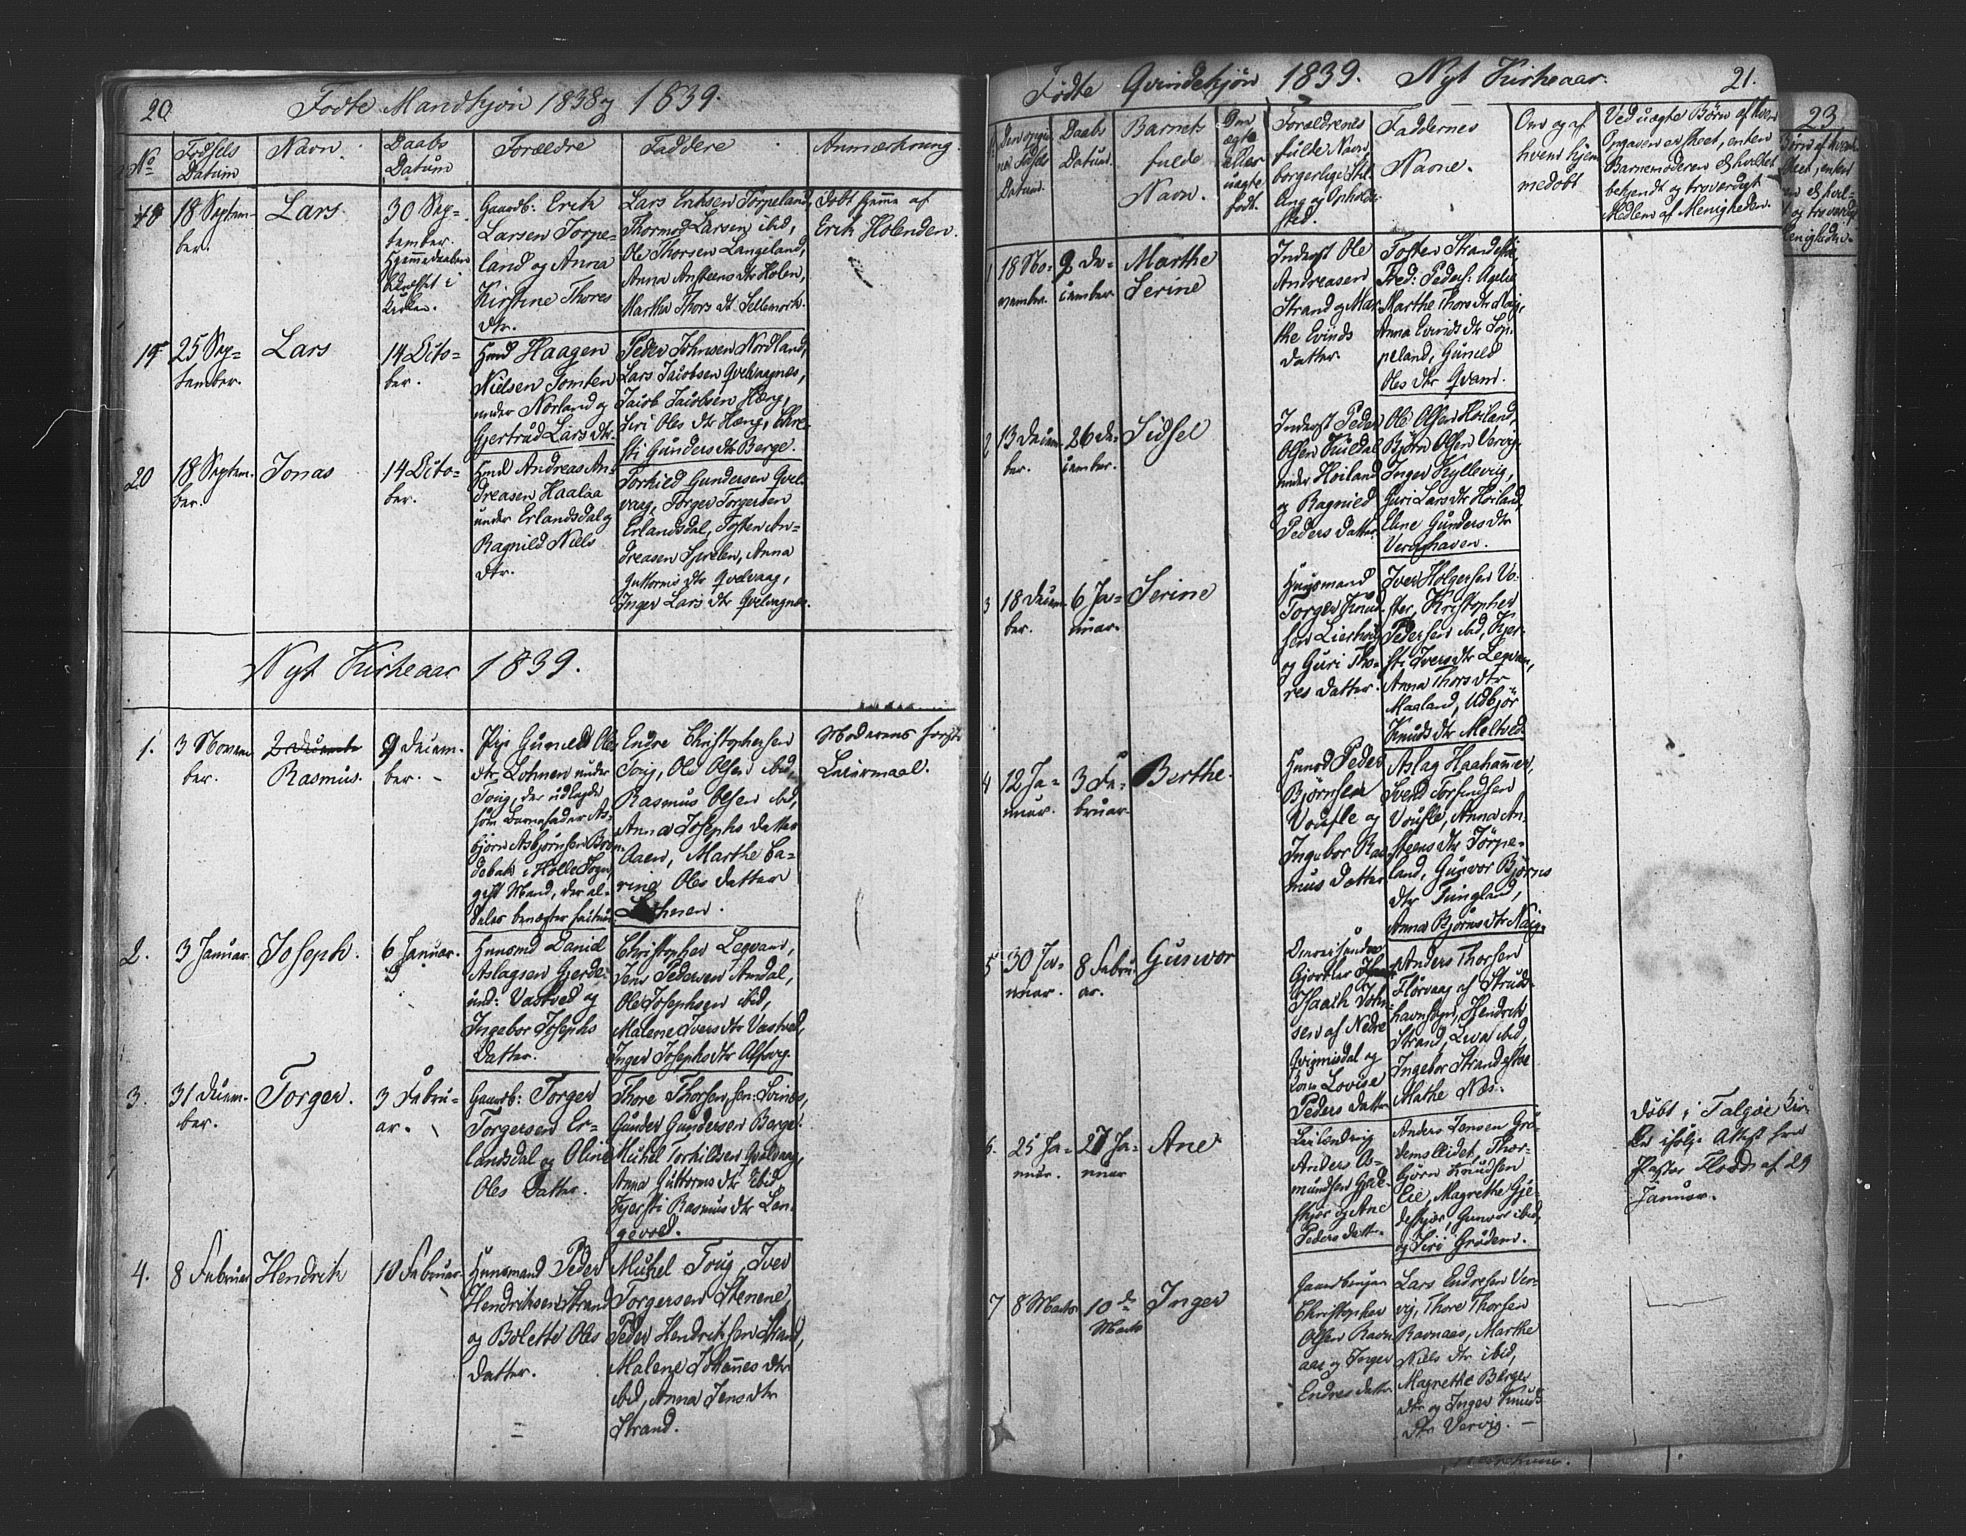 20. Fødte Mandkjøn 1838 og 1839.
No
Fødsels
Datum
Navn.
Daabs
Datum
Forældre
Faddere
Anmærkning.
18
18 Septem-
ber.
Lars
30 Sep-
tember.
Gaardb: Erik
Larsen Torpe-
land og Anna
Kirstine Thores
dtr.
Lars Eriksen Torpeland,
Thormod Larsen ibid,
Ole Thorsen Langeland,
Anna Anstens dtr Holen,
Martha Thors dt
Døbt hjemme af
Erik Holenden.
19
25 Sep-
tember.
Lars
14 Octo-
ber.
Huusmd Haagen
Nielsen Tomten
under Norland og
Gjertrud Lars dtr.
Peder Johnsen Nordland,
Lars Jacobsen Qvelvagnes,
Jacob Jacobsen Hæng,
Siri Oles dtr Hæng, Chre-
sti Gunders dtr Berge.
20
18 Septem-
ber.
Jonas
14 Octo-
ber.
Huusmd Andreas An-
dreasen Haalaa
under Erlandsdal og
Ragnild Niels
dtr.
Torkild Gundersen Qvel-
vaag, Torger Torgersen
Erlandsdal, Tosten An-
dreasen Sprelen, Anna
Guttorms dtr Qvelvaag,
Inger Lars dtr Qvelvagnes.
Nyt Kirkeaar 1839.
1.
3 Novem-
ber.
Rasmus.
9 Decem-
ber.
Pige Guneld Oles
dtr Lohnen under
Toug, der udlagde
som Barnefader As-
bjørn Asbjørnsen
i Holle Sogn,
gift Mand, der al-
deles benægter factum.
Endre Christophersen
Toug, Ole Olsen ibid,
Rasmus Olsen ibid,
Anna Josephs datter
Aaen, Marthe Ca-
rine Oles datter
Lohnen.
Moderens første
Leiermaal.
2.
3 Januar.
Joseph.
6 Januar.
Huusmd Daniel
Aslagsen Gjerde
und: Vastved og
Ingebor Josephs
datter.
Christopher Legvam,
Jens Pedersen Amdal,
Ole Josephsen ibid,
Malene Ivers dtr Vastved,
Inger Josephs dtr
3.
31 Decem-
ber.
Torger.
3 Febru-
ar.
Gaardb: Torger
Torgersen Er-
landsdal og Oline
Oles datter.
Thore Thorsen sen: Svines,
Gunder Gundersen Berge,
Michel Torkildsen Qvelvaag,
Anna Guttorms dtr ibid,
Kjersti Rasmus dtr Lan-
gevold.
4.
8 Februar
Hendrik
10 Februar
Huusmand Peder
Hendriksen Strand
og Bolette Oles
datter.
Michel Toug, Iver
Torgersen Stenene,
Peder Hendriksen Strand,
Malene Johannes dtr
ibid, Anna Jens dtr
Strand.
Fødte Qvindekjøn 1839. Nyt Kirkeaar. 21.
Daabs
Datum.
Barnets
fulde
Navn.
Om
ægte
eller
uægte
født.
Forældrenes
fulde Navn,
borgerlige Stil-
ling og Ophold-
sted.
Faddernes
Navne.
Om og af
hvem hjem-
medøbt
Ved uægte Børn af hvem
Opgaven er skeet, enten
Barnemoderen el. hvilket
bekjendt og troværdigt
Medlem af Menigheden.
1
18 No-
vember.
9 De-
cember
Marthe
Serine
Inderst Ole
Andreasen
Strand og Mar-
the Evinds
datter.
Marthe Thors dtr
Anna Evinds dtr
Guneld
Oles dtr Qvam.
2
13 Decem-
ber.
26 De-
cember.
Sidsel
Inderst Peder
Olsen
under Hoiland
og Ragnild
Peders datter.
Ole Olsen Hoiland,
Bjørn Olsen Vervig,
Inger Kyllevig,
Guri Lars dtr Hoiland,
Eline Gunders dtr
3
18 Decem-
ber.
6 Ja-
nuar.
Serine
Huusmand
Torger Knud-
sen
og Guri Tho-
res datter.
Iver Holgersen Vo-
ster, Kristopher
Pedersen ibid, Kjer-
sti Ivers dtr Legvam,
Anna Thors dtr
Maaland, Udbjør
Knuds dtr Meltved.
4
12 Ja-
nuar.
3 Fe-
bruar.
Berthe.
Huusmd Peder
Bjørnsen
Voufle og
Ingebor Ras-
mus datter
Aslag Haahammer,
Svend Torfindsen
Voufle, Anna An-
steens dtr Torpe-
land, Gunvor Bjørns
dtr Tungland,
Anna Bjørns dtr
5
30 Ja-
nuar.
8 Febru-
ar.
Gunvor
Isach John-
sen af Nedre
Qvigmisdal og
Lovise
Peders datter
Anders Thorsen
Florvaag af Strud-
havn, Hendrik
Strand, ibid,
Ingebor
Mathe Næs.
6.
25 Ja-
nuar.
27 Ja-
nuar
Ane
Leilending
Anders O-
mundsen
og Ane
Peders datter.
Anders Jensen Grö-
demsleidet, Thor-
bjørn Knudsen
Magrethe
Gunvor ibid
og Siri Grödem.
Døbt i Talgöe Kir-
ke ifølge Attest fra
Pastor Flood af 29
Januar.
7
8 Marts
10 de
Marts
Inger
Gaardbruger
Christopher
Olsen Ravn-
aas og Inger
Endres datter
Lars Endresen Ver-
vig, Thore Thorsen
Ravnaas, Marthe
Niels dtr ibid,
Magrethe Berges
dtr og Inger Knuds
dtr Vervig.
23